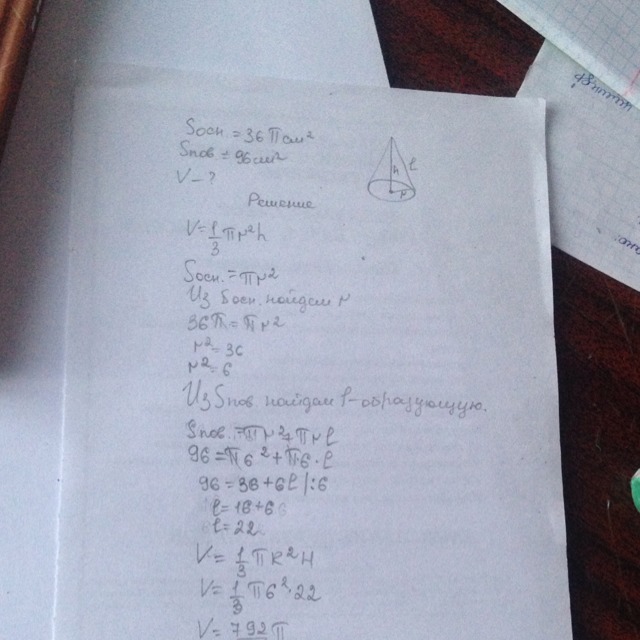 Sосн. = 36π см²
Sпов = 96 см²
V - ?
h l
r
Решение
V = 1/3 πr²h
Sосн. = πr²
Из Sосн. найдем r
36π = πr²
r² = 36
r² = 6
Из Sпов найдем l - образующую.
Sпов. = πr² + πrl
96 = π6² + π6·l
96 = 36 + 6l |:6
l = 16 + 6
l = 22
V = 1/3 πR²H
V = 1/3 π6²·22
V = 792π